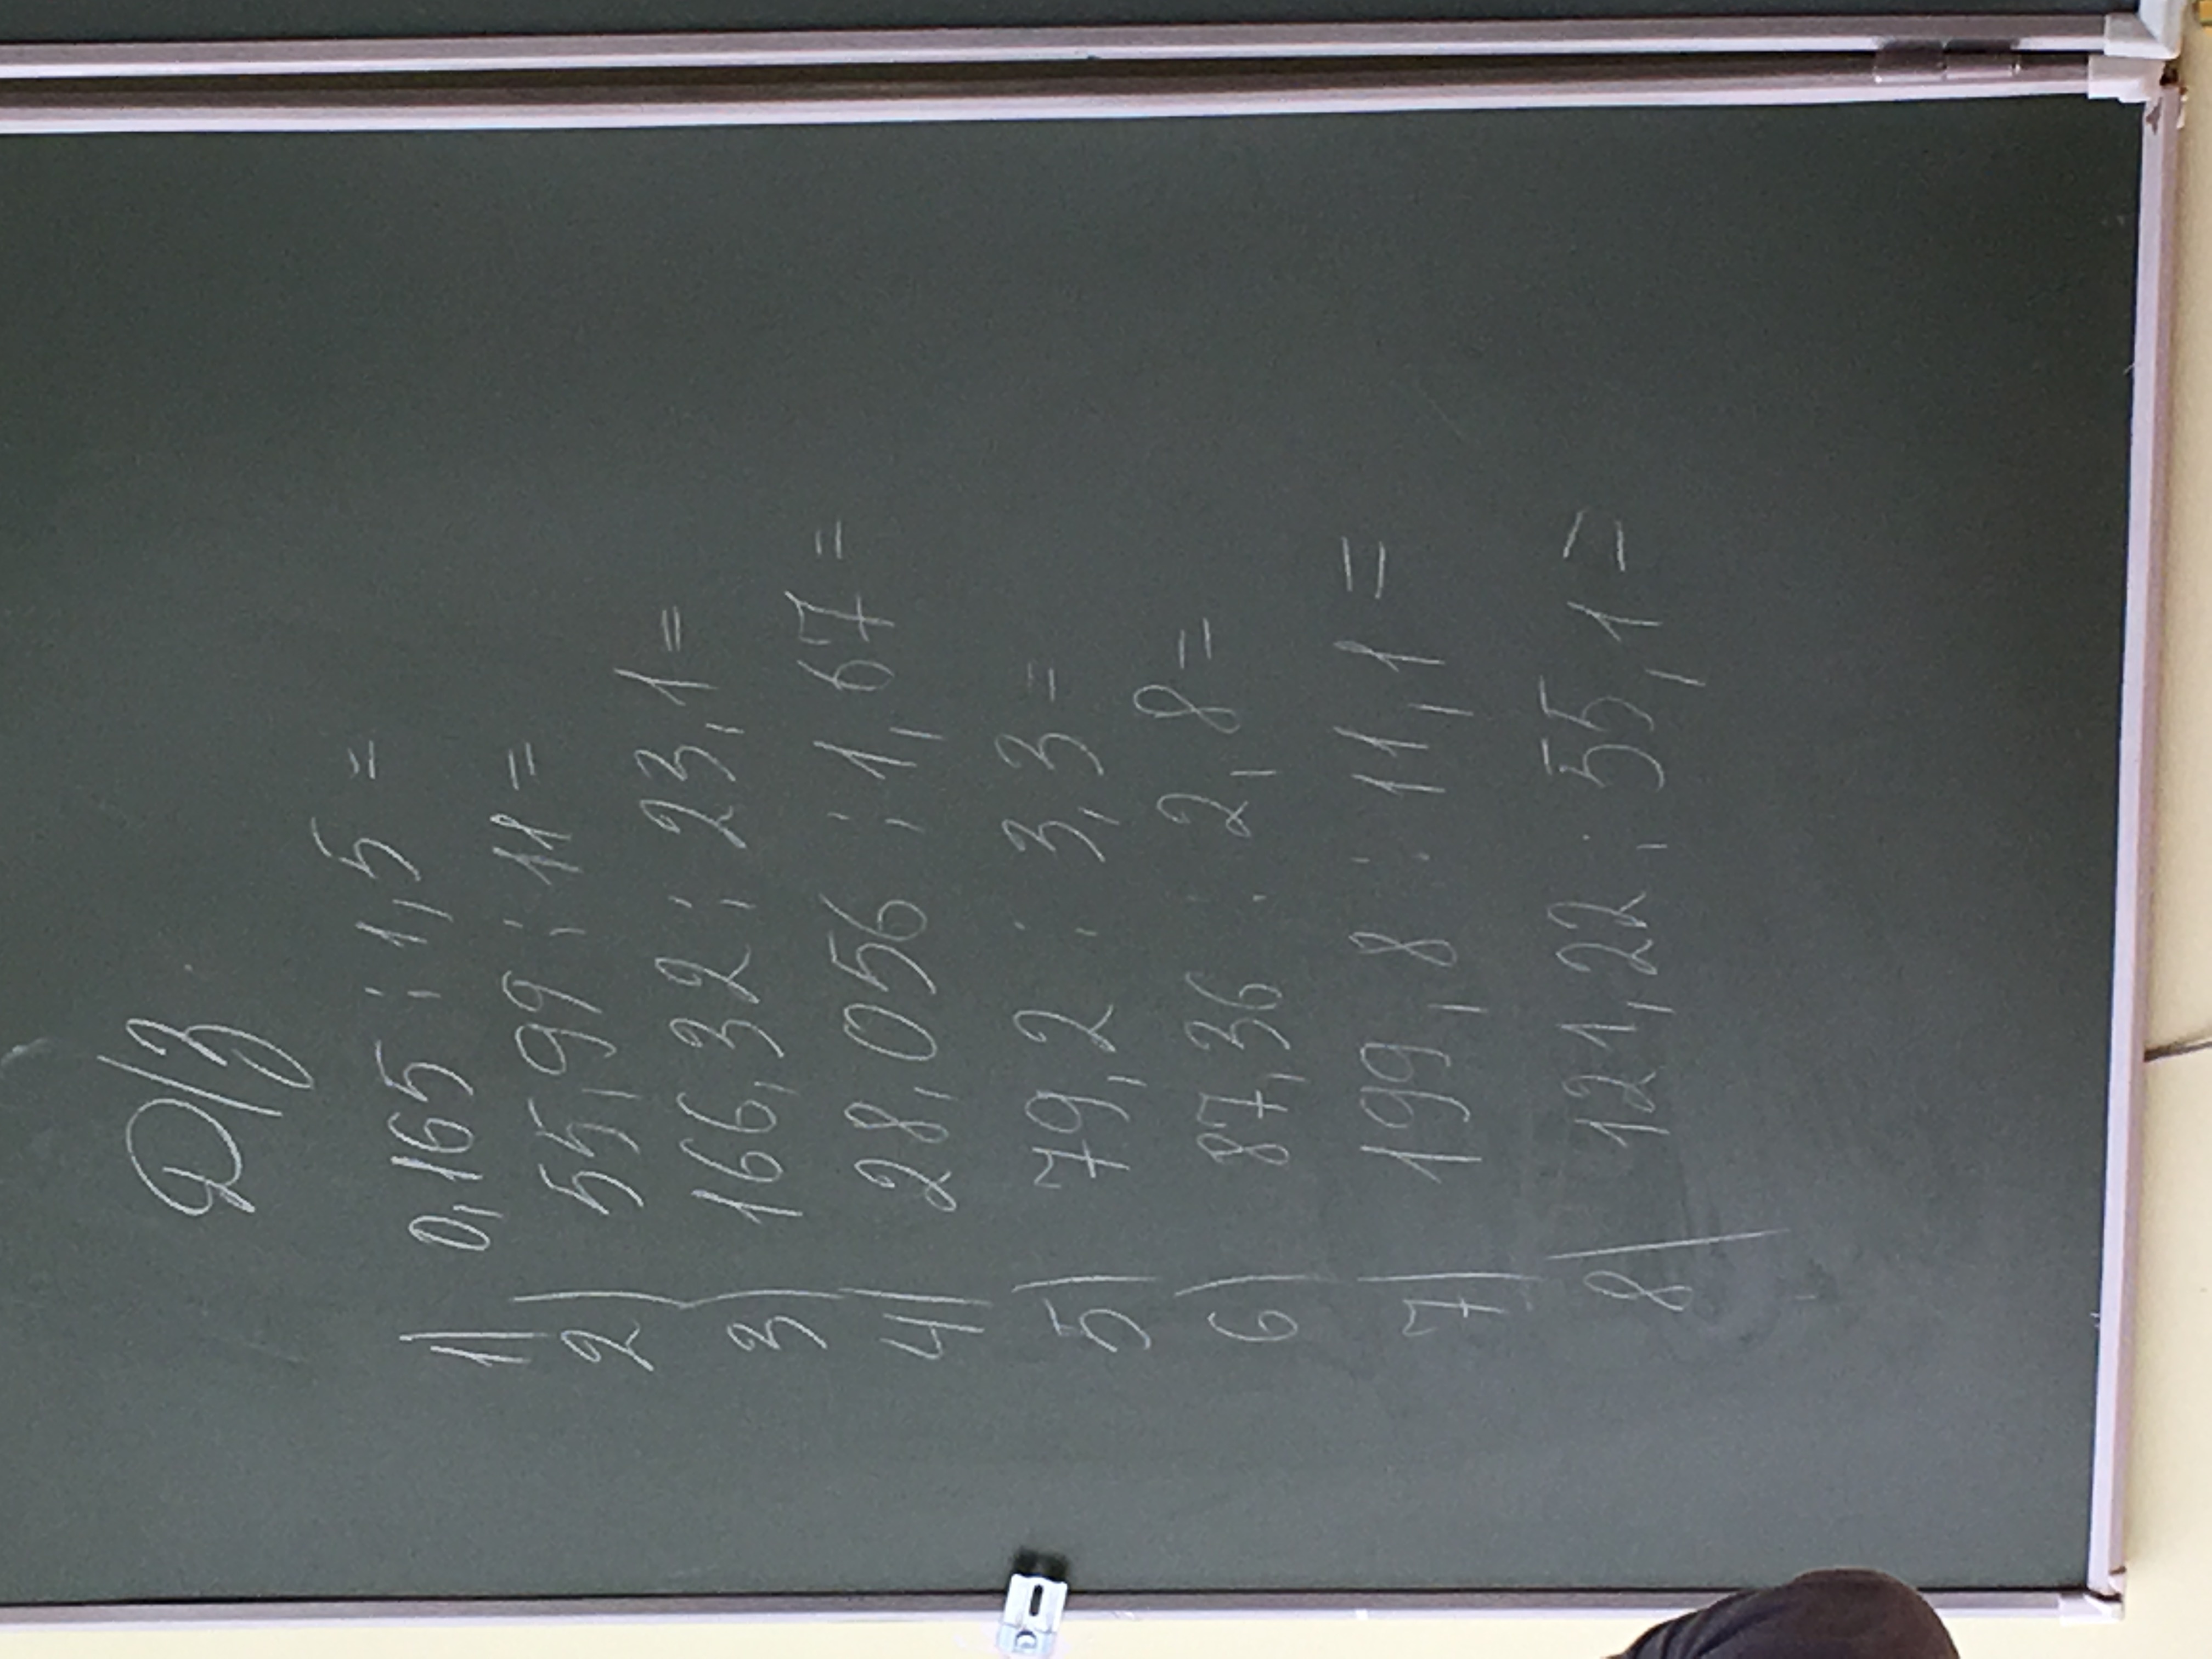 Д/з
1) 0,165 : 1,5 =
2) 55,99 : 11 =
3) 166,32 : 23,1 =
4) 28,056 : 1,67 =
5) 79,2 : 3,3 =
6) 87,36 : 2,8 =
7) 199,8 : 11,1 =
8) 121,22 : 55,1 =